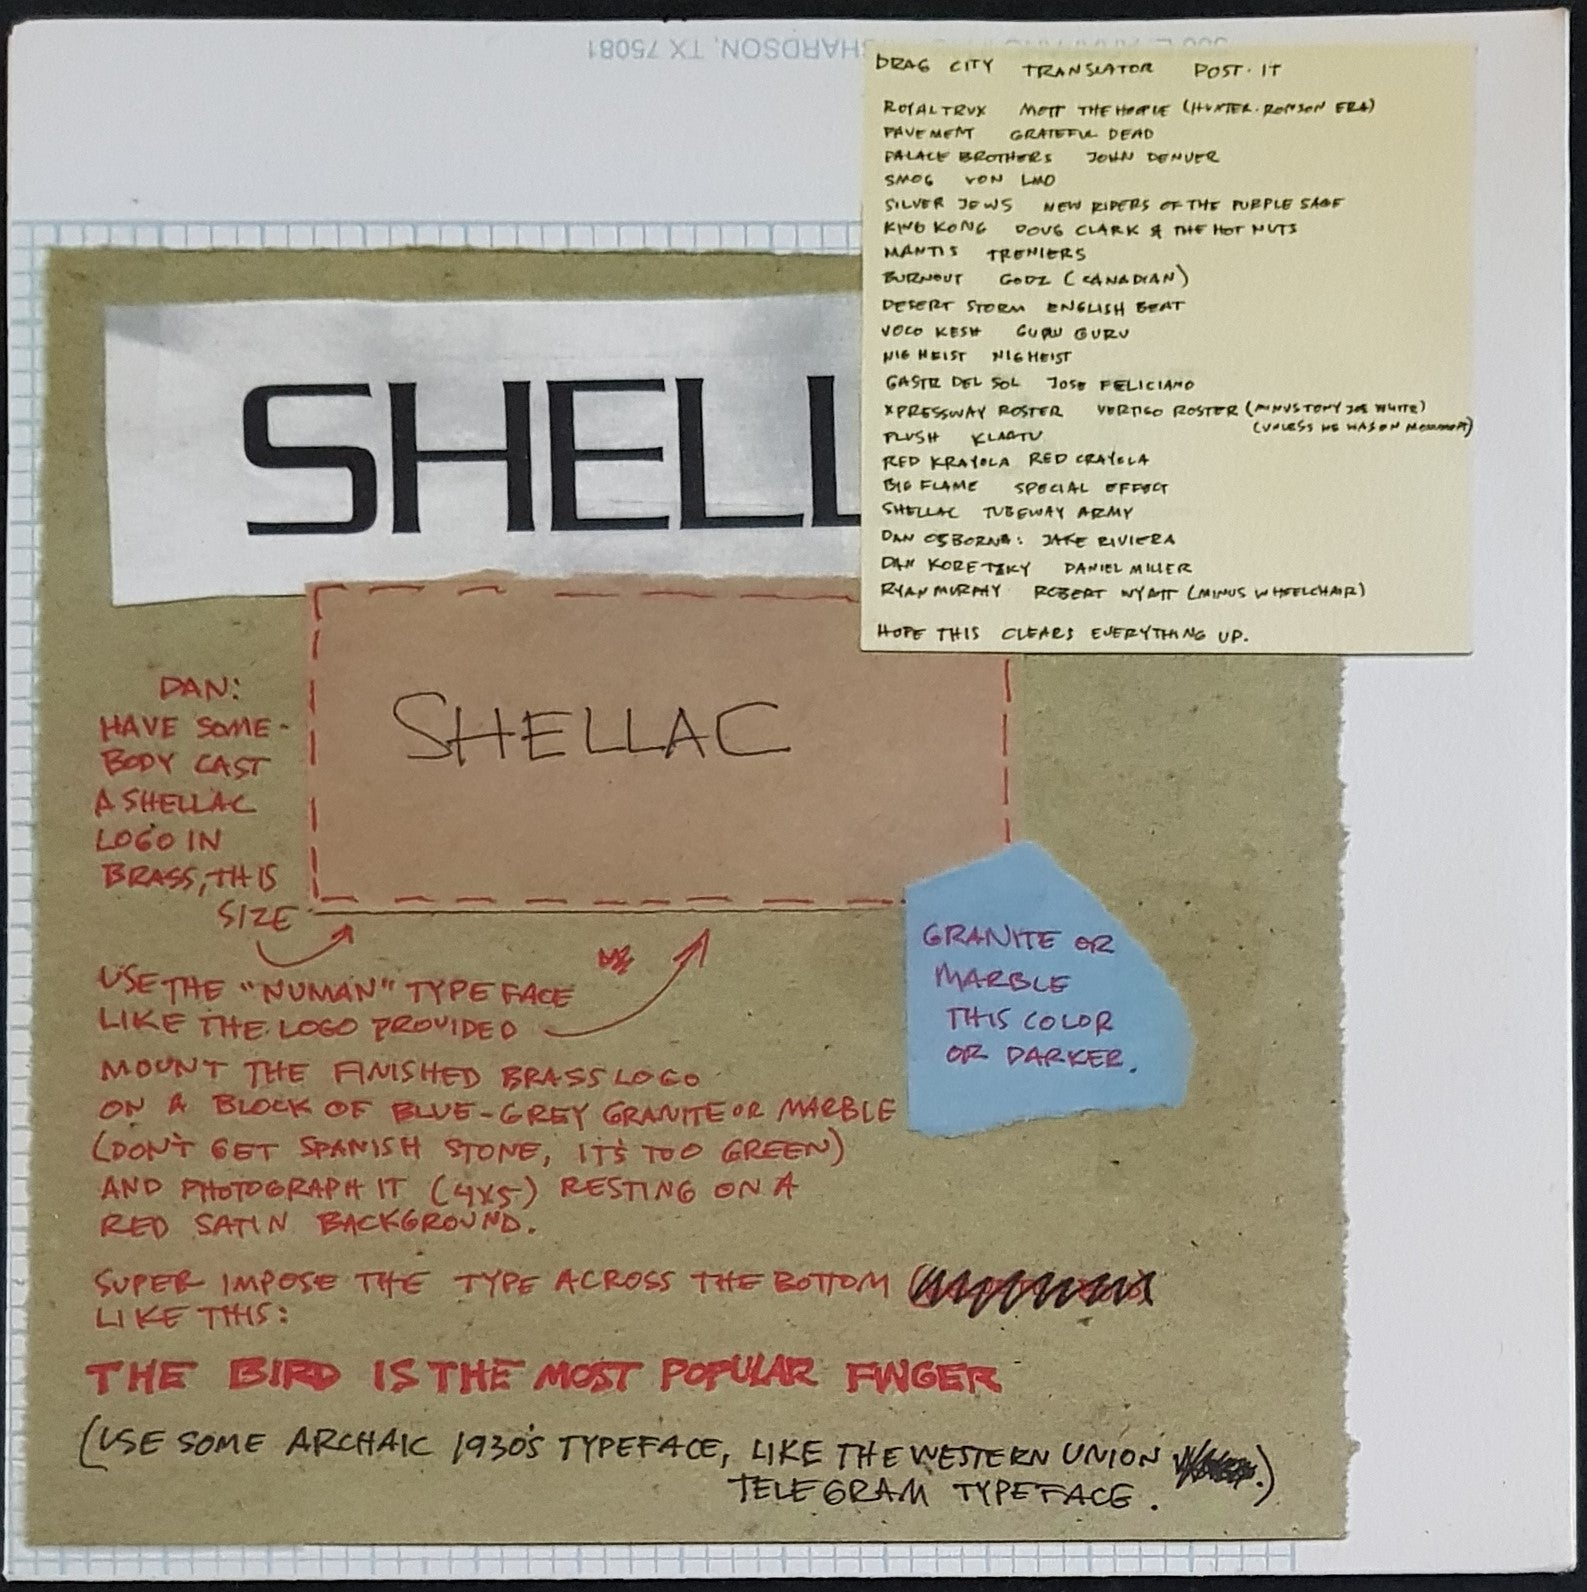 RICHARDSON, TX 75081
DRAG CITY TRANSLATOR POST-IT
ROYAL TRUX MOTT THE HOOPLE (HUNTER-RONSON ERA)
PAVEMENT GRATEFUL DEAD
PALACE BROTHERS JOHN DENVER
SMOG VON LMO
SILVER JEWS NEW RIDERS OF THE PURPLE SAGE
KING KONG DOUG CLARK & THE HOT NUTS
MANTIS TRENIERS
BURNOUT GODZ (CANADIAN)
DESERT STORM ENGLISH BEAT
VOCO KESH GURU GURU
NIG HEIST NIG HEIST
GASTR DEL SOL JOSE FELICIANO
XPRESSWAY ROSTER VERTIGO ROSTER (MINUS TONY JOE WHITE)
(UNLESS HE WAS ON MONUMENT)
PLUSH KLAATU
RED KRAYOLA RED CRAYOLA
BIG FLAME SPECIAL EFFECT
SHELLAC TUBEWAY ARMY
DAN OSBORNE: JAKE RIVIERA
DAN KORETZKY DANIEL MILLER
RYAN MURPHY ROBERT WYATT (MINUS WHEELCHAIR)
HOPE THIS CLEARS EVERYTHING UP.
SHELL
SHELLAC
DAN:
HAVE SOME-
BODY CAST
A SHELLAC
LOGO IN
BRASS, THIS
SIZE
USE THE "NUMAN" TYPEFACE
LIKE THE LOGO PROVIDED
MOUNT THE FINISHED BRASS LOGO
ON A BLOCK OF BLUE-GREY GRANITE OR MARBLE
(DON'T GET SPANISH STONE, IT'S TOO GREEN)
AND PHOTOGRAPH IT (4X5) RESTING ON A
RED SATIN BACKGROUND.
GRANITE OR
MARBLE
THIS COLOR
OR DARKER.
SUPER IMPOSE THE TYPE ACROSS THE BOTTOM
LIKE THIS:
THE BIRD IS THE MOST POPULAR FINGER
(USE SOME ARCHAIC 1930'S TYPEFACE, LIKE THE WESTERN UNION
TELEGRAM TYPEFACE.)